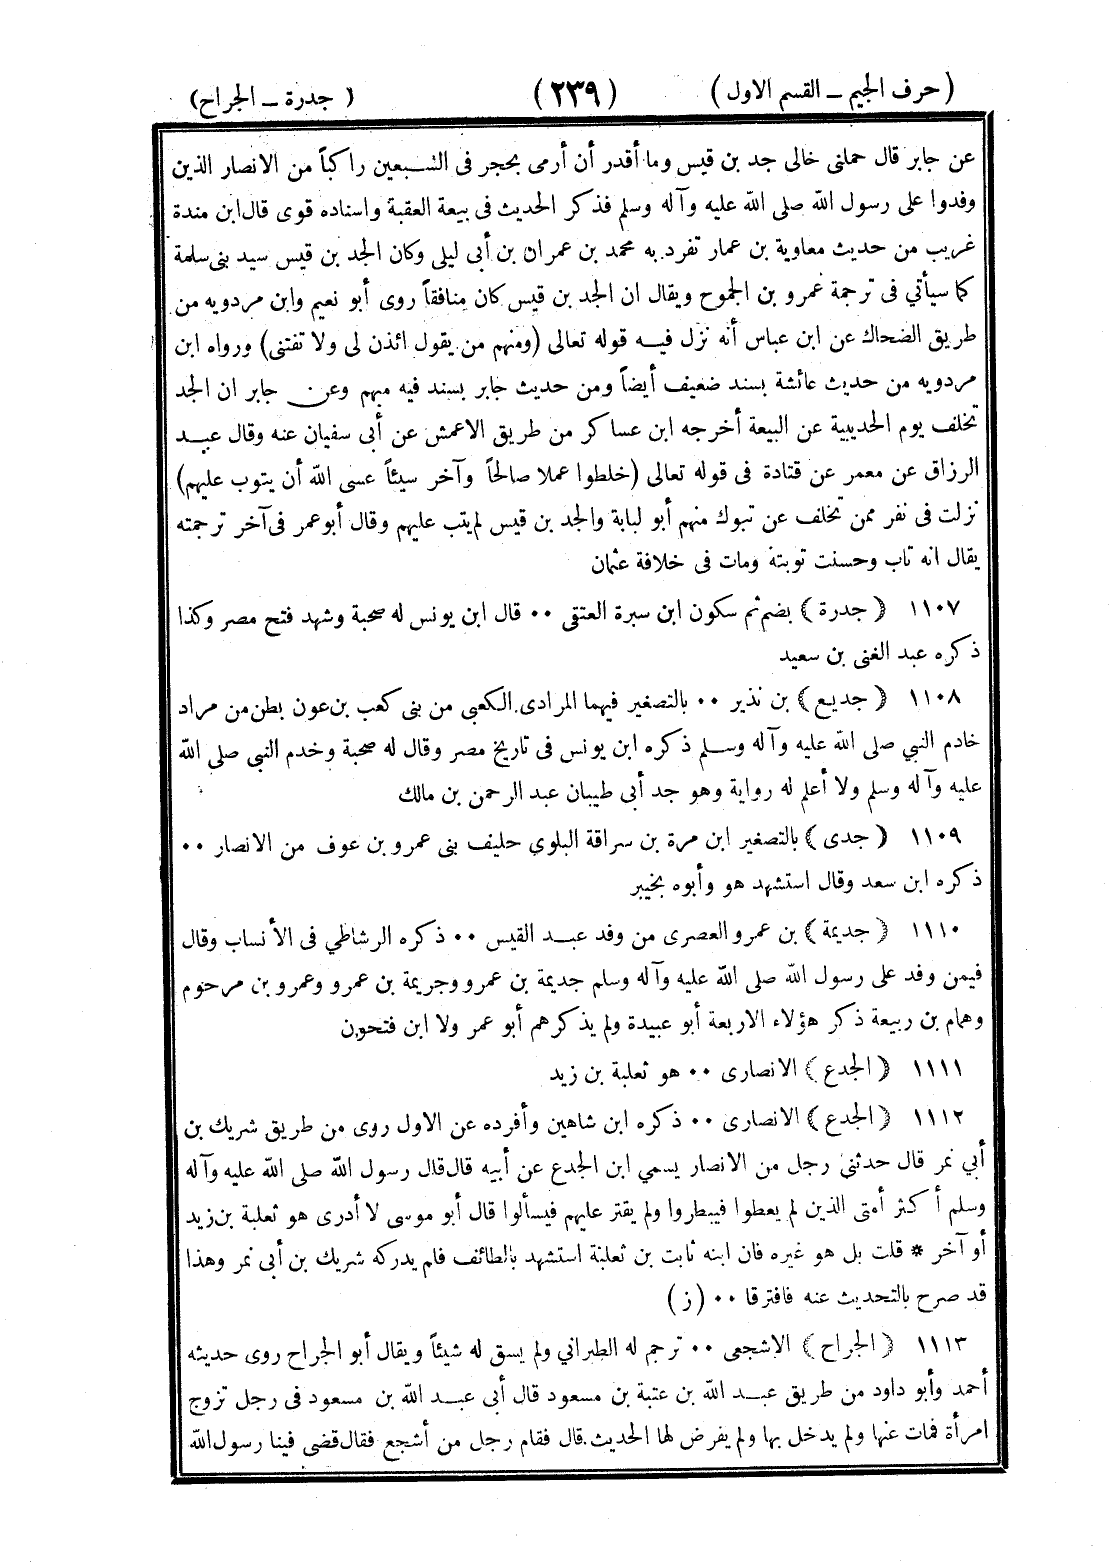 ( حرف الجيم – القسم الاول ) (٢٣٩) ( جدرة – الجراح )
عن جابر قال حملنى خالى جد بن قيس وما أقدر أن أرمى بحجر فى السبعين راكباً من الانصار الذين
وفدوا على رسول الله صلى الله عليه وآله وسلم فذكر الحديث فى بيعة العقبة واسناده قوى قال ابن مندة
غريب من حديث معاوية بن عمار تفرد به محمد بن عمران بن أبى ليلى وكان الجد بن قيس سيد بنى سلمة
كما سيأتي فى ترجمة عمرو بن الجموح ويقال ان الجد بن قيس كان منافقاً روى أبو نعيم وابن مردويه من
طريق الضحاك عن ابن عباس أنه نزل فيه قوله تعالى (ومنهم من يقول ائذن لى ولا تفتنى) ورواه ابن
مردويه من حديث عائشة بسند ضعيف أيضاً ومن حديث جابر بسند فيه مبهم وعن جابر ان الجد
تخلف يوم الحديبية عن البيعة أخرجه ابن عساكر من طريق الاعمش عن أبى سفيان عنه وقال عبد
الرزاق عن معمر عن قتادة فى قوله تعالى (خلطوا عملا صالحاً وآخر سيئاً عسى الله أن يتوب عليهم)
نزلت فى نفر ممن تخلف عن تبوك منهم أبو لبابة والجد بن قيس لم يتب عليهم وقال أبو عمر فى آخر ترجمته
يقال انه تاب وحسنت توبته ومات فى خلافة عثمان
١١٠٧ ( جدرة ) بضم ثم سكون ابن سبرة العتقى ٠٠ قال ابن يونس له صحبة وشهد فتح مصر وكذا
ذكره عبد الغنى بن سعيد
١١٠٨ ( جديع ) بن نذير ٠٠ بالتصغير فيهما المرادى الكعبي من بنى كعب بن عون بطن من مراد
خادم النبي صلى الله عليه وآله وسلم ذكره ابن يونس فى تاريخ مصر وقال له صحبة وخدم النبى صلى الله
عليه وآله وسلم ولا أعلم له رواية وهو جد أبى ظبيان عبد الرحمن بن مالك
١١٠٩ ( جدى ) بالتصغير ابن مرة بن سراقة البلوي حليف بنى عمرو بن عوف من الانصار ٠٠
ذكره ابن سعد وقال استشهد هو وأبوه بخيبر
١١١٠ ( جديمة ) بن عمرو العصرى من وفد عبد القيس ٠٠ ذكره الرشاطي فى الأنساب وقال
فيمن وفد على رسول الله صلى الله عليه وآله وسلم جديمة بن عمرو وجريمة بن عمرو وعمرو بن مرحوم
وهمام بن ربيعة ذكر هؤلاء الاربعة أبو عبيدة ولم يذكرهم أبو عمر ولا ابن فتحون
١١١١ ( الجدع ) الانصارى ٠٠ هو ثعلبة بن زيد
١١١٢ ( الجدع ) الانصارى ٠٠ ذكره ابن شاهين وأفرده عن الاول روى من طريق شريك بن
أبي نمر قال حدثنى رجل من الانصار يسمي ابن الجدع عن أبيه قال قال رسول الله صلى الله عليه وآله
وسلم أكثر أمتى الذين لم يعطوا فيبطروا ولم يقتر عليهم فيسألوا قال أبو موسى لا أدرى هو ثعلبة بن زيد
أو آخر * قلت بل هو غيره فان ابنه ثابت بن ثعلبة استشهد بالطائف فلم يدركه شريك بن أبى نمر وهذا
قد صرح بالتحديث عنه فافترقا ٠٠ ( ز )
١١١٣ ( الجراح ) الاشجعى ٠٠ ترجم له الطبراني ولم يسق له شيئاً ويقال أبو الجراح روى حديثه
أحمد وأبو داود من طريق عبد الله بن عتبة بن مسعود قال أتى عبد الله بن مسعود فى رجل تزوج
امرأة فمات عنها ولم يدخل بها ولم يفرض لها الحديث قال فقام رجل من أشجع فقال قضى فينا رسول الله